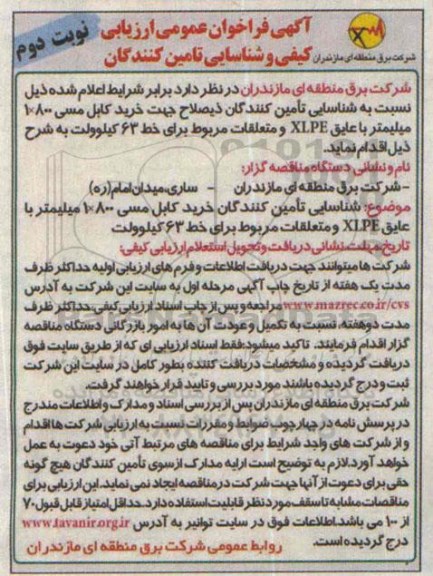 آگهی فراخوان عمومی ارزیابی
کیفی و شناسایی تامین کنندگان
نوبت دوم
شرکت برق منطقه ای مازندران
شرکت برق منطقه ای مازندران در نظر دارد برابر شرایط اعلام شده ذیل
نسبت به شناسایی تأمین کنندگان ذیصلاح جهت خرید کابل مسی ۸۰۰×۱
میلیمتر با عایق XLPE و متعلقات مربوط برای خط ۶۳ کیلوولت به شرح
ذیل اقدام نماید.
نام و نشانی دستگاه مناقصه گزار:
- شرکت برق منطقه ای مازندران - ساری، میدان امام (ره)
موضوع: شناسایی تأمین کنندگان خرید کابل مسی ۸۰۰×۱ میلیمتر با
عایق XLPE و متعلقات مربوط برای خط ۶۳ کیلوولت
تاریخ، مهلت، نشانی دریافت و تحویل استعلام ارزیابی کیفی:
شرکت ها میتوانند جهت دریافت اطلاعات و فرم های ارزیابی اولیه حداکثر ظرف
مدت یک هفته از تاریخ چاپ آگهی مرحله اول به سایت این شرکت به آدرس
www.mazrec.co.ir/cvs مراجعه و پس از چاپ اسناد ارزیابی کیفی، حداکثر ظرف
مدت دو هفته، نسبت به تکمیل و عودت آن ها به امور بازرگانی دستگاه مناقصه
گزار اقدام فرمایند. تاکید میشود: فقط اسناد ارزیابی ای که از طریق سایت فوق
دریافت گردیده و مشخصات دریافت کننده بطور کامل در سایت این شرکت
ثبت و درج گردیده باشند مورد بررسی و تایید قرار خواهند گرفت.
شرکت برق منطقه ای مازندران پس از بررسی اسناد و مدارک و اطلاعات مندرج
در پرسش نامه در چهارچوب ضوابط و مقررات نسبت به ارزیابی شرکت ها اقدام
و از شرکت های واجد شرایط برای مناقصه های مرتبط آتی خود دعوت به عمل
خواهد آورد. لازم به توضیح است ارایه مدارک از سوی تأمین کنندگان هیچ گونه
حقی برای دعوت از آنها جهت شرکت در مناقصه ایجاد نمی نماید. این ارزیابی برای
مناقصات مشابه تا سقف مورد نظر قابلیت استفاده دارد. حداقل امتیاز قابل قبول ۷۰
از ۱۰۰ می باشد. اطلاعات فوق در سایت توانیر به آدرس www.tavanir.org.ir
درج گردیده است.
روابط عمومی شرکت برق منطقه ای مازندران